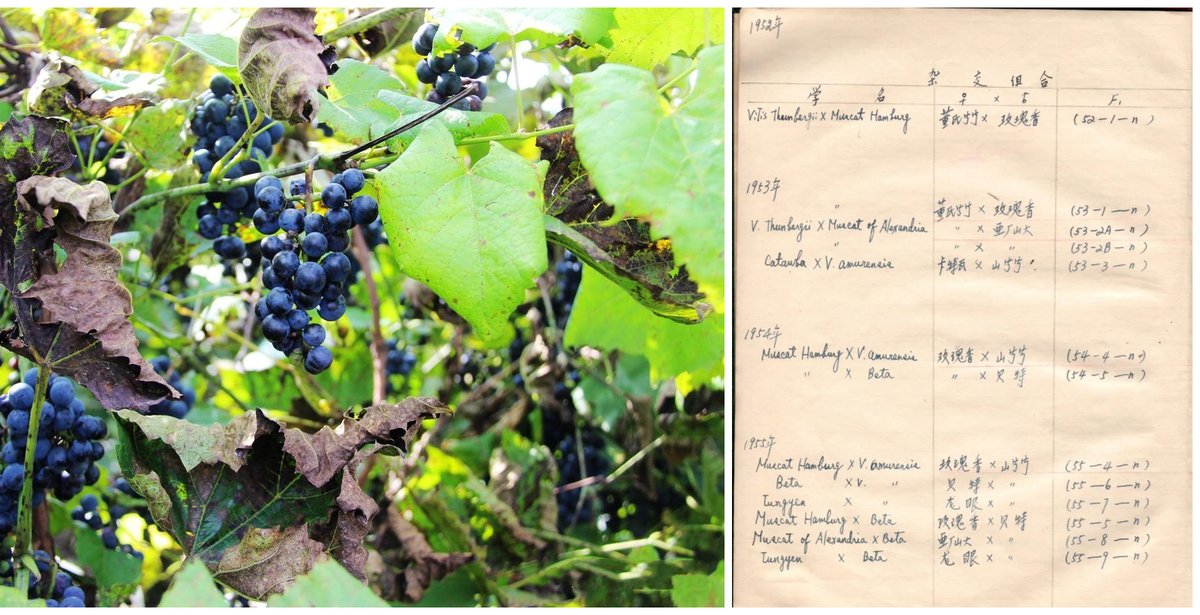 1952年
杂 交 组 合
学 名 ♀ × ♂ F₁
Vitis Thunbergii × Muscat Hamburg 董氏艹艹 × 玫瑰香 (52—1—n)
1953年
〃 董氏艹艹 × 玫瑰香 (53—1—n)
V. Thunbergii × Muscat of Alexandria 〃 × 亚历山大 (53—2A—n)
〃 〃 × 〃 (53—2B—n)
Catawba × V. amurensis 卡特瓦 × 山艹艹 (53—3—n)
1954年
Muscat Hamburg × V. amurensis 玫瑰香 × 山艹艹 (54—4—n)
〃 × Beta 〃 × 贝特 (54—5—n)
1955年
Muscat Hamburg × V. amurensis 玫瑰香 × 山艹艹 (55—4—n)
Beta × V. 〃 贝特 × 〃 (55—6—n)
Tungyen × 〃 龙眼 × 〃 (55—7—n)
Muscat Hamburg × Beta 玫瑰香 × 贝特 (55—5—n)
Muscat of Alexandria × Beta 亚历山大 × 〃 (55—8—n)
Tungyen × Beta 龙眼 × 〃 (55—9—n)